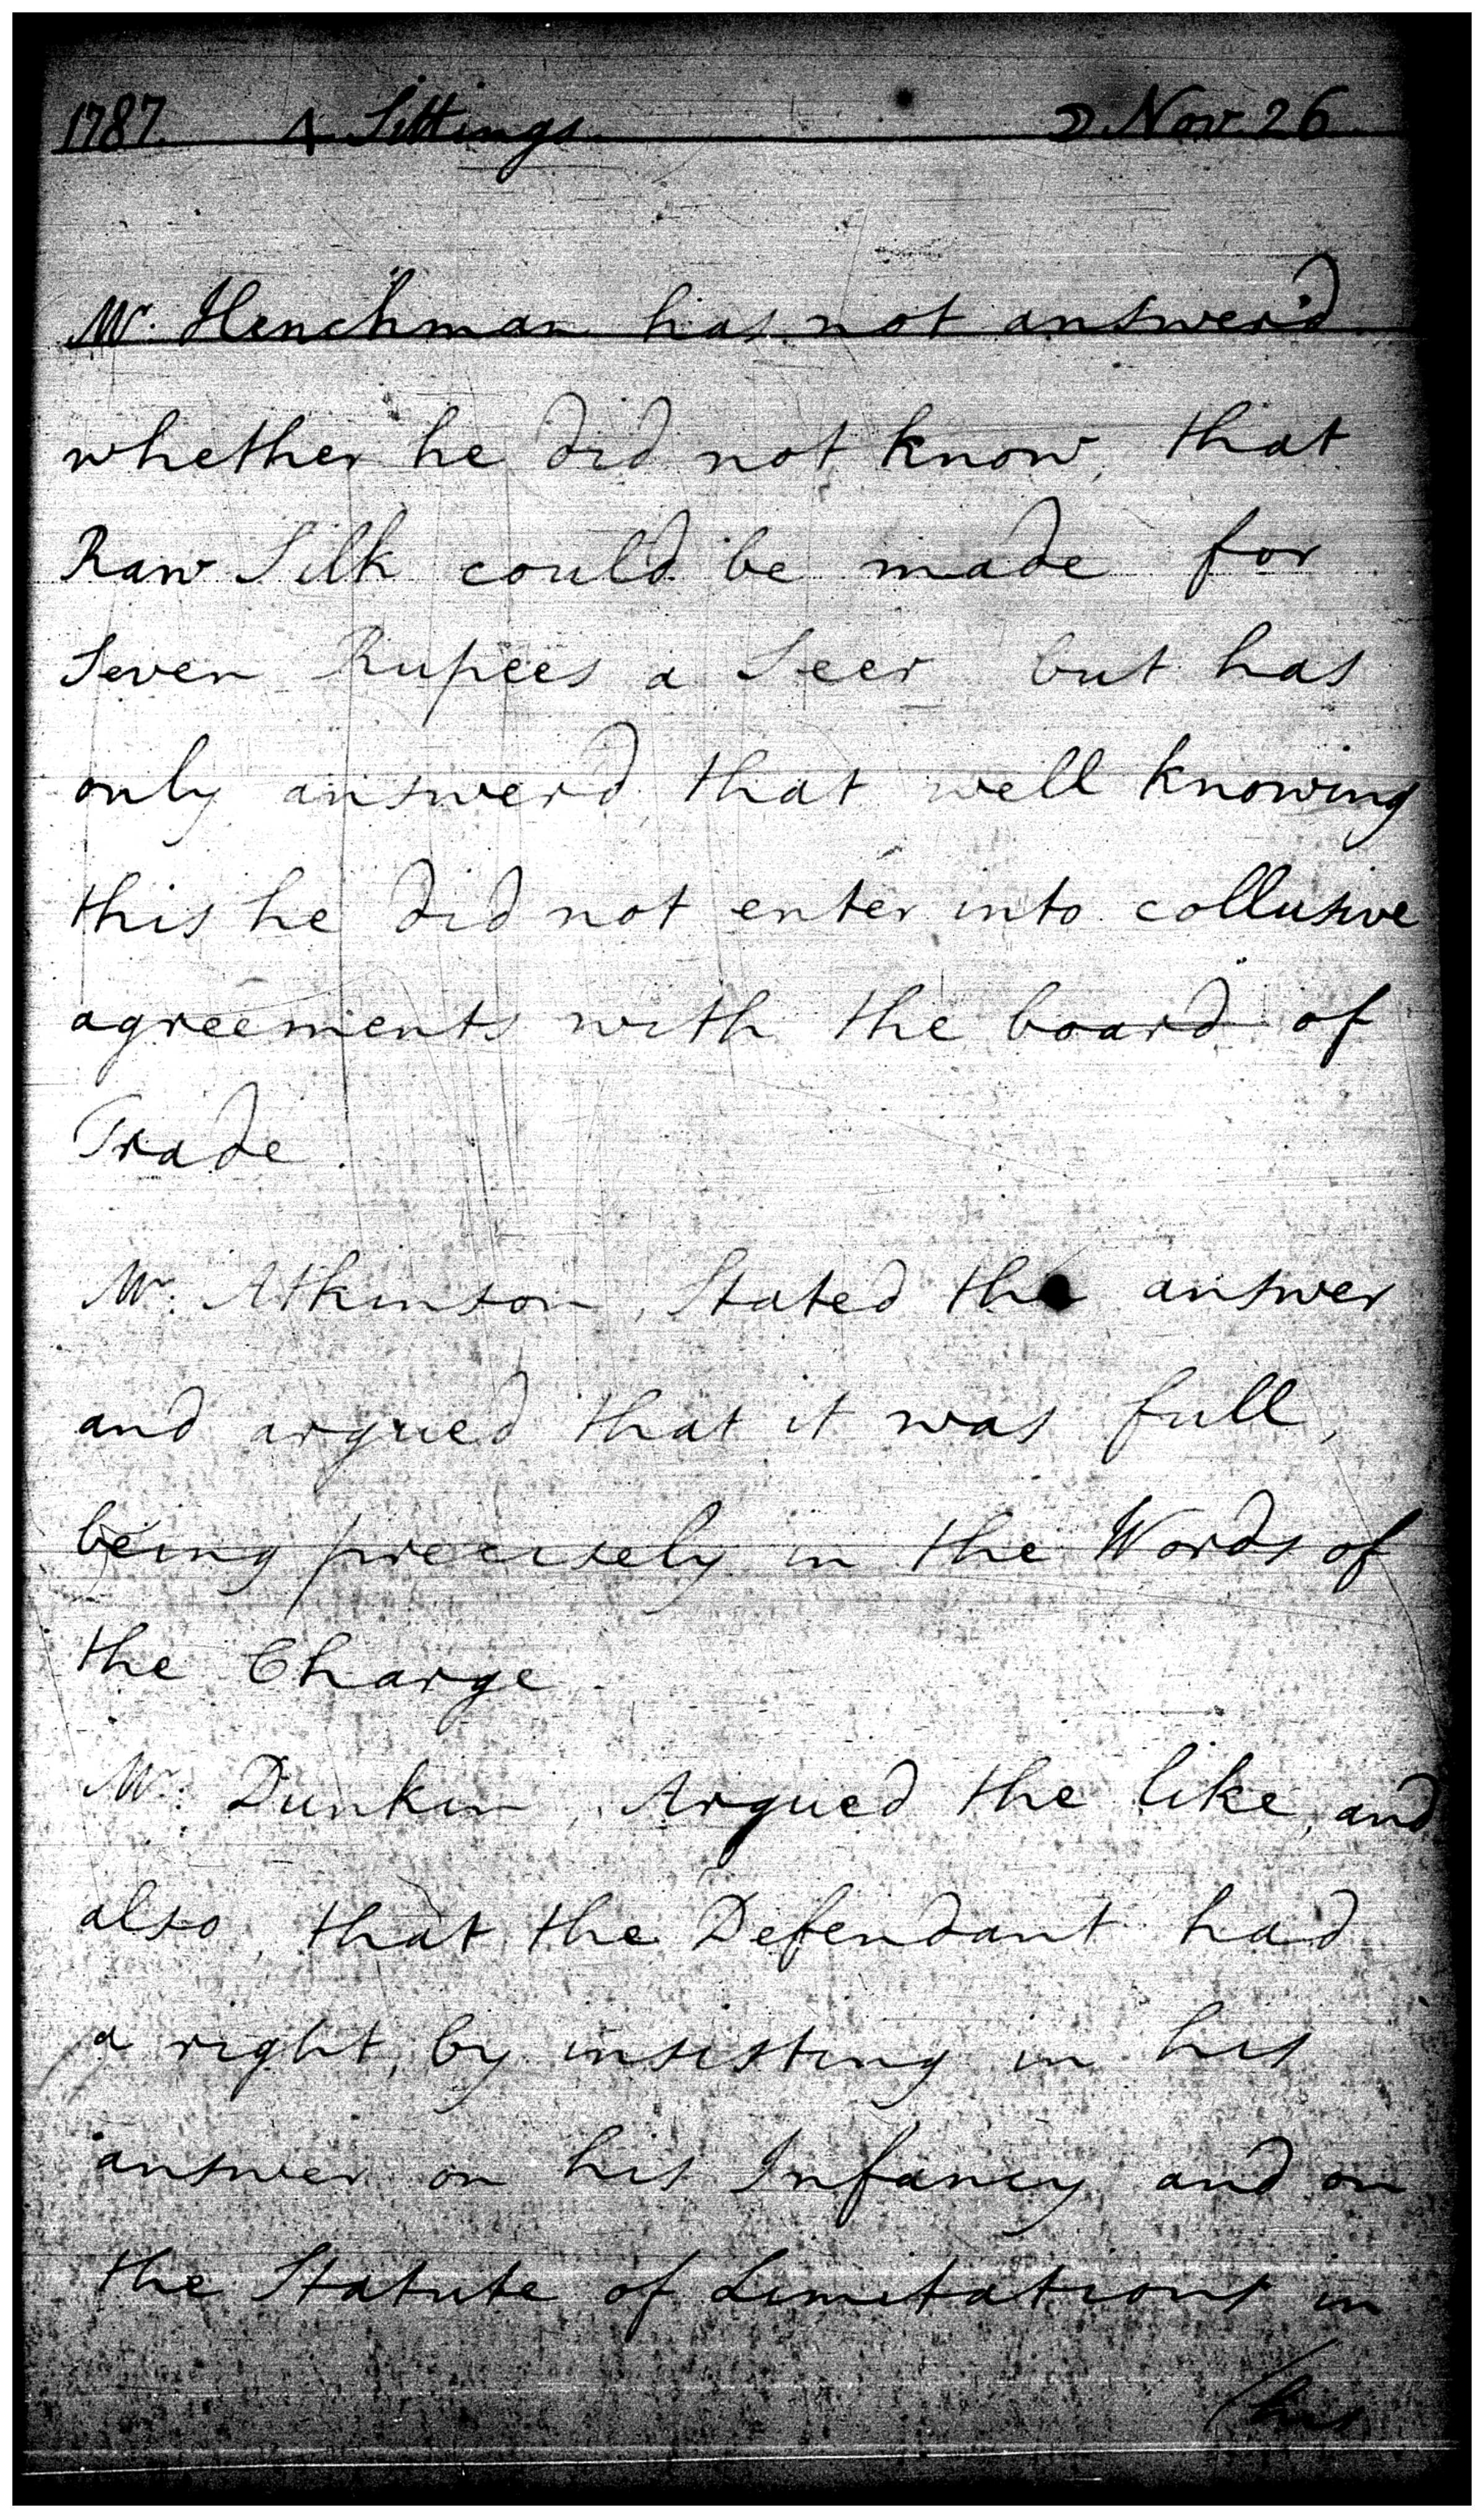 1787. 4 Sittings. ☽ Nov. 26.
Mr. Henchman has not answer'd
whether he did not know, that
Raw Silk could be made for
Seven Rupees a Seer but has
only answerd that well knowing
this he did not enter into collusive
agreements with the board of
Trade.
Mr. Atkinson, Stated the answer
and argued that it was full,
being precisely in the Words of
the Charge.
Mr. Dunkin, Argued the like, and
also, that the Defendant had
a right, by insisting in his
answer on his Infancy and on
the Statute of Limitations in
/his